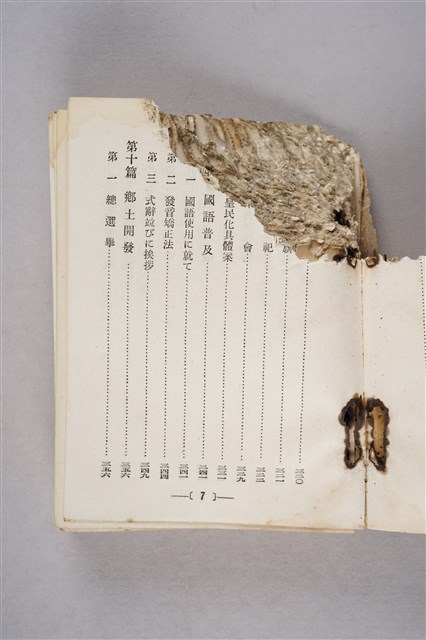 ……三二〇
……三二一
祀……三二二
會……三二九
皇民化具體案……三三一
國語普及……三四一
一 國語使用に就て……三四一
第二 發音矯正法……三四四
第三 式辭並びに挨拶……三四九
第十篇 鄕土開發……三五六
第一 總選擧……三五六
—( 7 )—